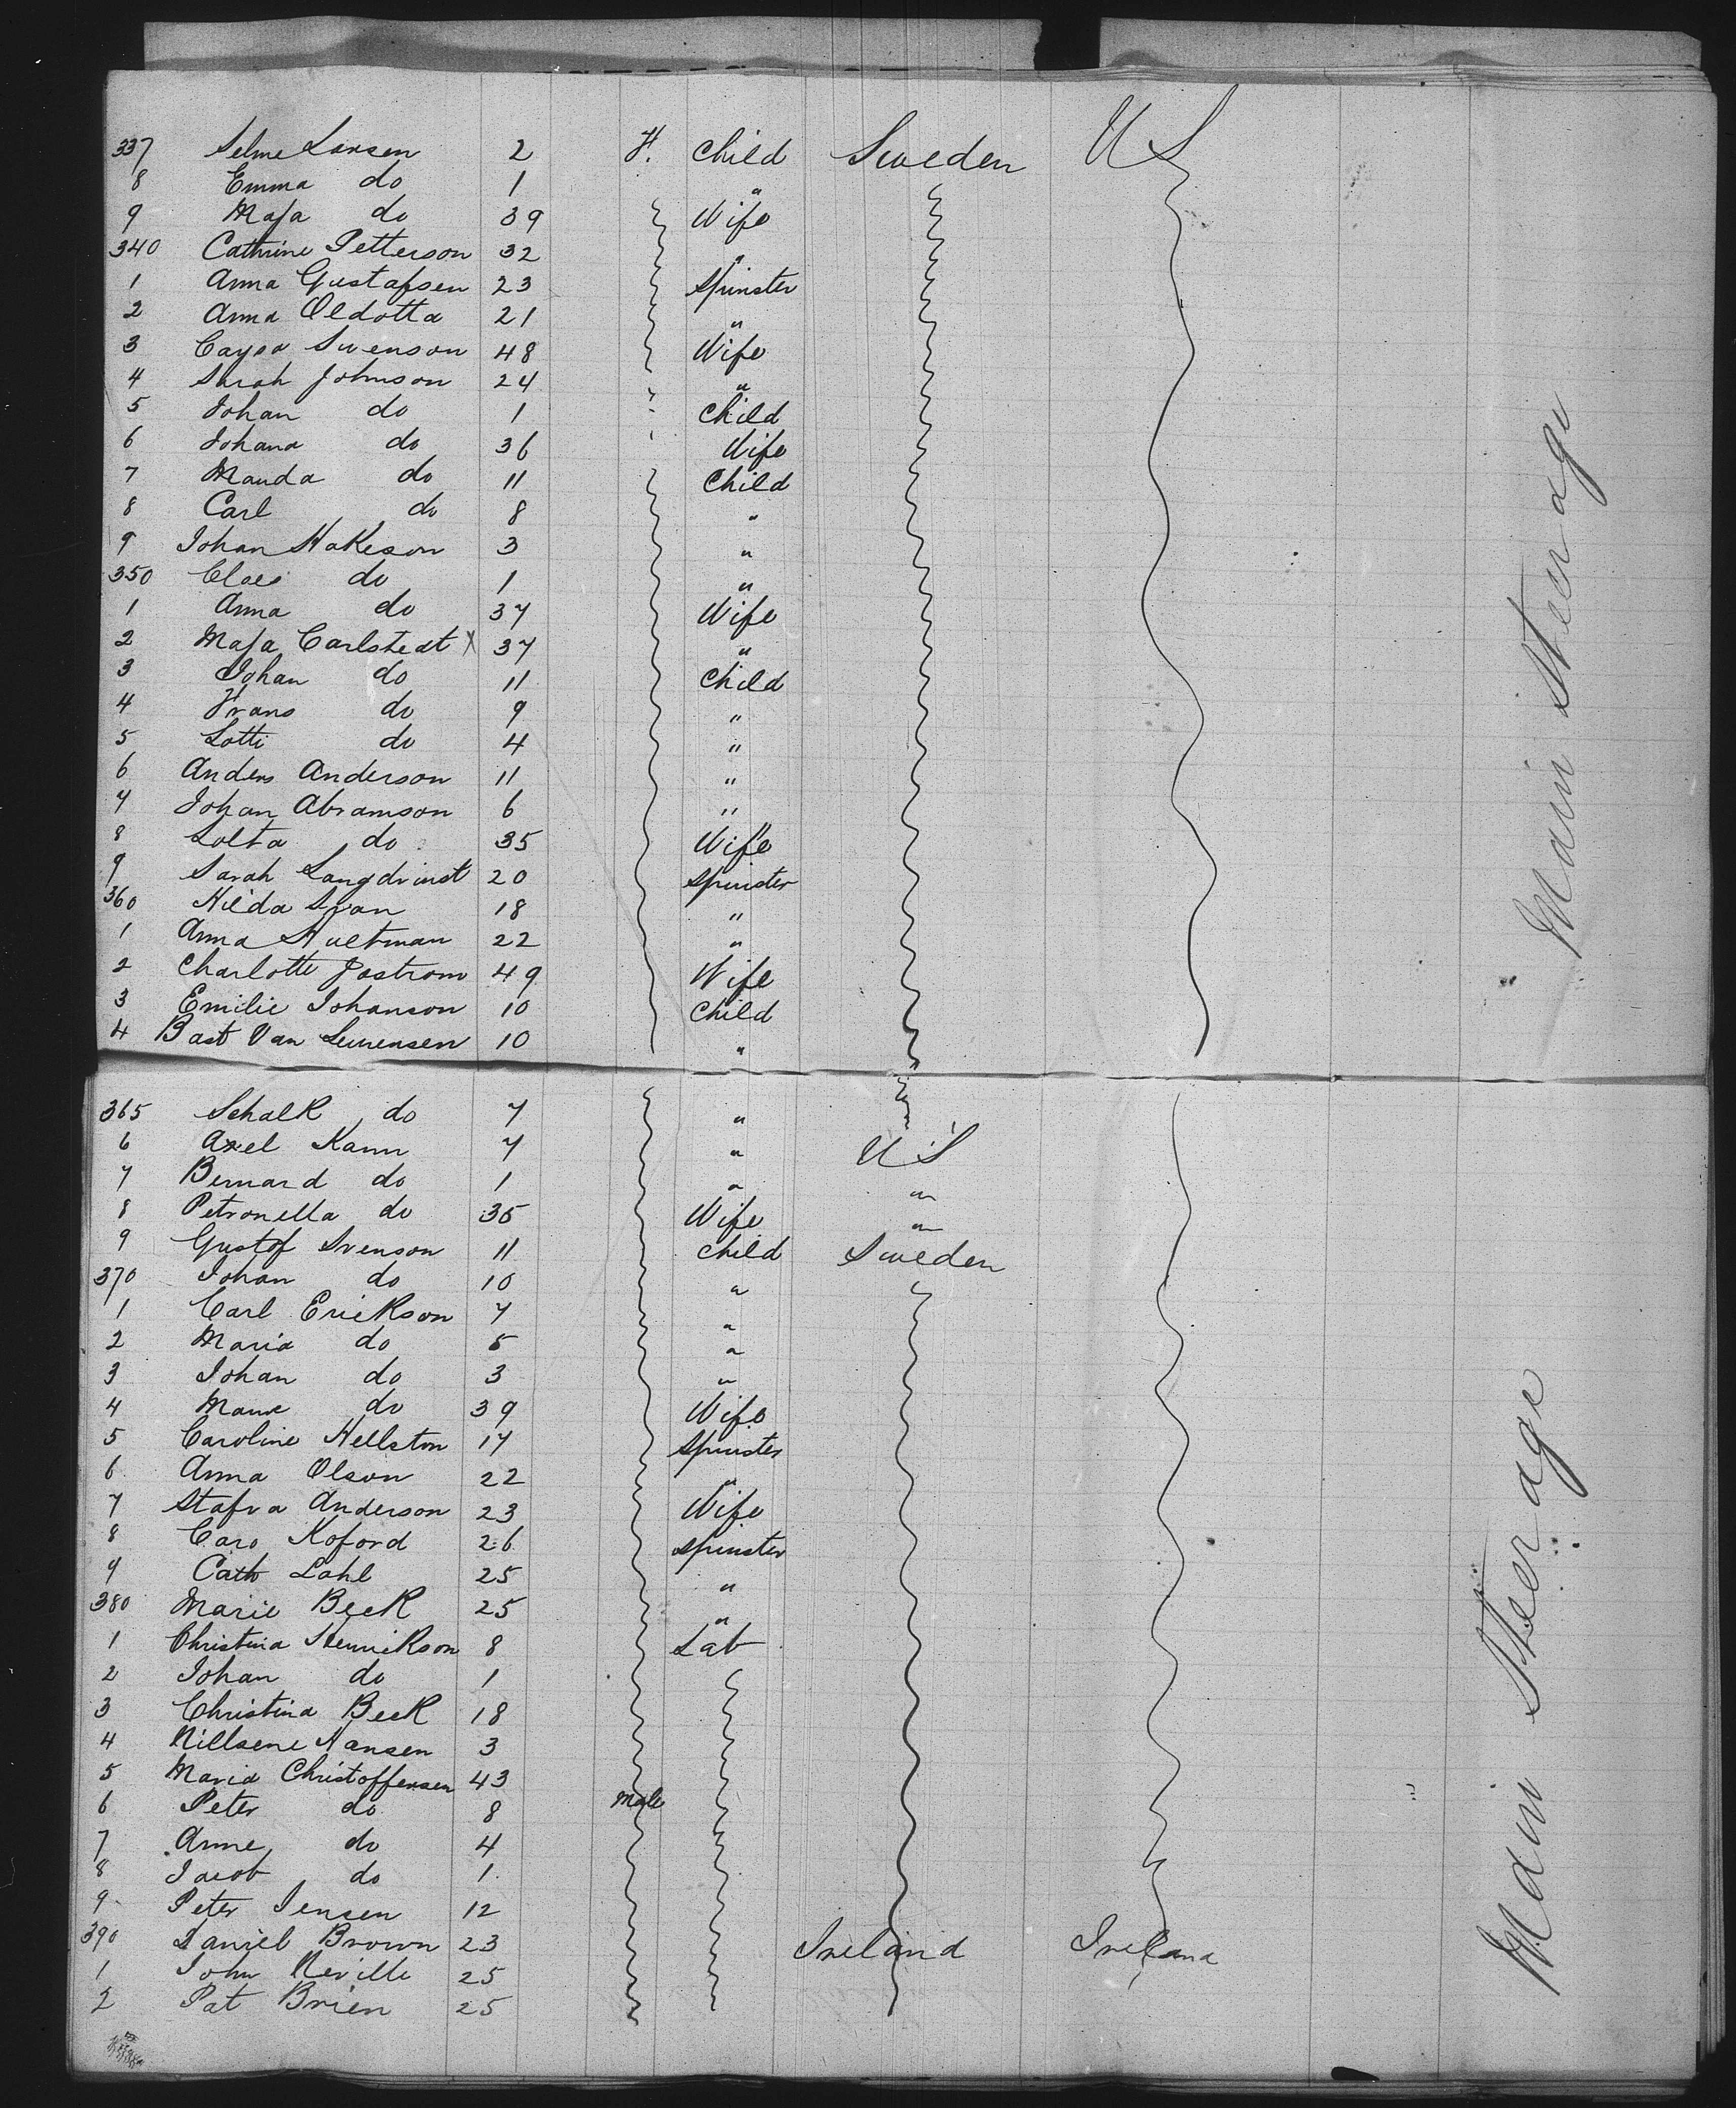 337 Selme Larsen 2 F. Child Sweden U S
8 Emma do 1 "
9 Maja do 39 Wife
340 Cathrine Petterson 32 "
1 Anna Gustafsen 23 Spinster
2 Anna Oldotta 21 "
3 Caysa Swenson 48 Wife
4 Sarah Johnson 24 "
5 Johan do 1 Child
6 Johana do 36 Wife
7 Manda do 11 Child
8 Carl do 8 "
9 Johan Hakeson 3 "
350 Claes do 1 "
1 Anna do 37 Wife
2 Maja Carlstedt X 37 "
3 Johan do 11 Child
4 Frans do 9 "
5 Lotti do 4 "
6 Anders Anderson 11 "
7 Johan Abramson 6 "
8 Lotta do 35 Wife
9 Sarah 20 Spinster
360 Hilda Svan 18 "
1 Anna Hultman 22 "
2 Charlotte Jostrom 49 Wife
3 Emilie Johanson 10 Child
4 Bast Van 10 "
Main Steerage
365 Schalk do 7 "
6 Axel Kann 7 " U S
7 Bernard do 1 " "
8 Petronella do 35 Wife "
9 Gustof Svenson 11 Child Sweden
370 Johan do 10 "
1 Carl Erickson 7 "
2 Maria do 5 "
3 Johan do 3 "
4 do 39 Wife
5 Caroline Hellston 17 Spinster
6 Anna Olson 22 "
7 Stafva Anderson 23 Wife
8 Caro Koford 26 Spinster
9 Cath Lahl 25 "
380 Marie Beck 25 "
1 Christina Henrikson 8 Lab
2 Johan do 1
3 Christina Beck 18
4 Nillsene Hansen 3
5 Maria Christoffersen 43
6 Peter do 8 Male
7 Anne do 4
8 Jacob do 1
9 Peter Jensen 12
390 Daniel Brown 23 Ireland Ireland
1 John Neville 25
2 Pat Brien 25
Main Steerage